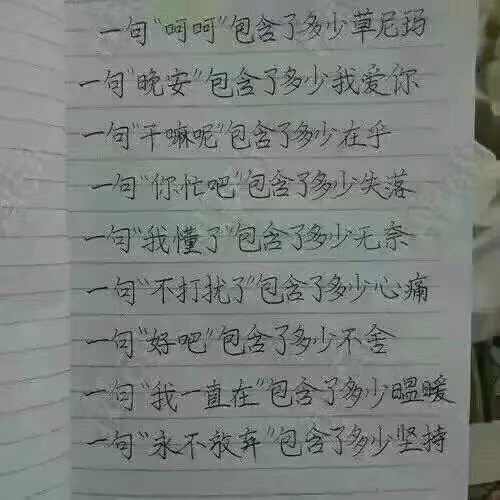 一句"呵呵"包含了多少草尼玛
一句"晚安"包含了多少我爱你
一句"干嘛呢"包含了多少在乎
一句"你忙吧"包含了多少失落
一句"我懂了"包含了多少无奈
一句"不打扰了"包含了多少心痛
一句"好吧"包含了多少不舍
一句"我一直在"包含了多少温暖
一句"永不放弃"包含了多少坚持